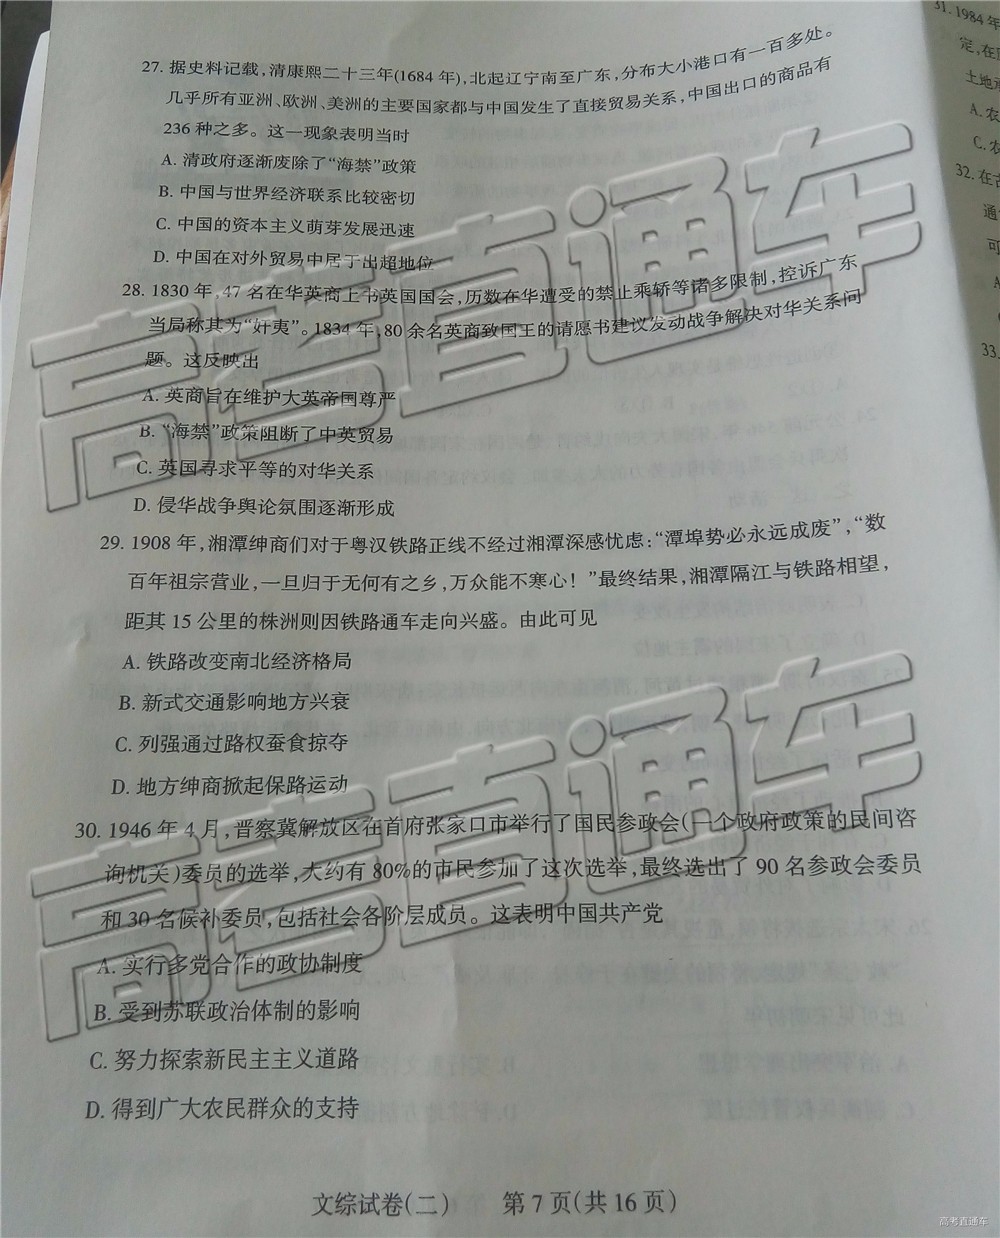 27. 据史料记载,清康熙二十三年(1684 年),北起辽宁南至广东,分布大小港口有一百多处。
几乎所有亚洲、欧洲、美洲的主要国家都与中国发生了直接贸易关系,中国出口的商品有
236 种之多。这一现象表明当时
A. 清政府逐渐废除了“海禁”政策
B. 中国与世界经济联系比较密切
C. 中国的资本主义萌芽发展迅速
D. 中国在对外贸易中居于出超地位
28. 1830 年,47 名在华英商上书英国国会,历数在华遭受的禁止乘轿等诸多限制,控诉广东
当局称其为“奸夷”。1834 年,80 余名英商致国王的请愿书建议发动战争解决对华关系问
题。这反映出
A. 英商旨在维护大英帝国尊严
B. “海禁”政策阻断了中英贸易
C. 英国寻求平等的对华关系
D. 侵华战争舆论氛围逐渐形成
29. 1908 年,湘潭绅商们对于粤汉铁路正线不经过湘潭深感忧虑:“潭埠势必永远成废”,“数
百年祖宗营业,一旦归于无何有之乡,万众能不寒心!”最终结果,湘潭隔江与铁路相望,
距其 15 公里的株洲则因铁路通车走向兴盛。由此可见
A. 铁路改变南北经济格局
B. 新式交通影响地方兴衰
C. 列强通过路权蚕食掠夺
D. 地方绅商掀起保路运动
30. 1946 年 4 月,晋察冀解放区在首府张家口市举行了国民参政会(一个政府政策的民间咨
询机关)委员的选举,大约有 80%的市民参加了这次选举,最终选出了 90 名参政会委员
和 30 名候补委员,包括社会各阶层成员。这表明中国共产党
A. 实行多党合作的政协制度
B. 受到苏联政治体制的影响
C. 努力探索新民主主义道路
D. 得到广大农民群众的支持
文综试卷(二) 第 7 页(共 16 页)
31. 1984 年
定,在
土地
A. 农
C. 农
32. 在古
通
可
A
33.
高考直通车
高考直通车
高考直通车